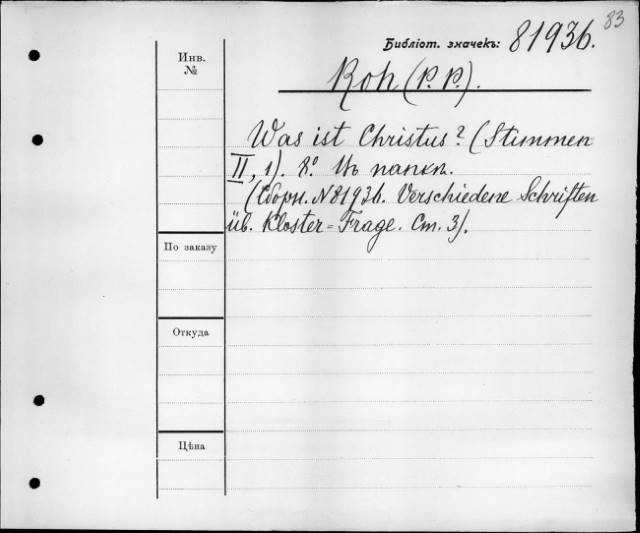 83
Библіот. значекъ: 81936.
Инв.
№
Roh (P. P.).
Was ist Christus? (Stimmen
II, 1). 8º. Въ папкѣ.
(Сборн. № 81936. Verschiedene Schriften
üb. Kloster=Frage. Ст. 3).
По заказу
Откуда
Цѣна